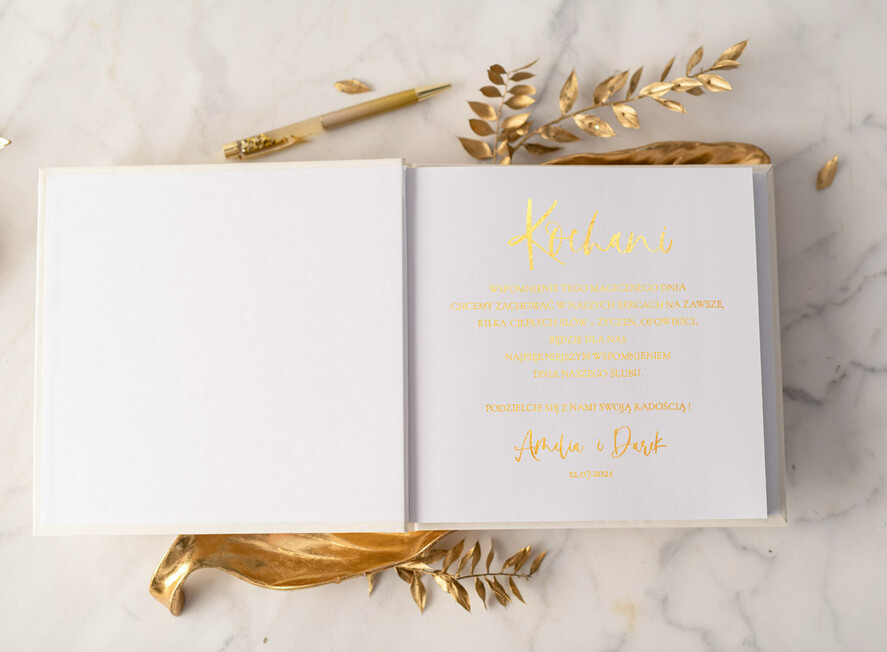 Kochani
WSPOMNIENIE TEGO MAGICZNEGO DNIA
CHCEMY ZACHOWAĆ W NASZYCH SERCACH NA ZAWSZE,
KILKA CIEPŁYCH SŁÓW, ŻYCZEŃ, OPOWIEŚCI,
BĘDZIE DLA NAS
NAJPIĘKNIEJSZYM WSPOMNIENIEM
DNIA NASZEGO ŚLUBU.
PODZIELCIE SIĘ Z NAMI SWOJĄ RADOŚCIĄ!
Amelia i Darek
12.07.2021